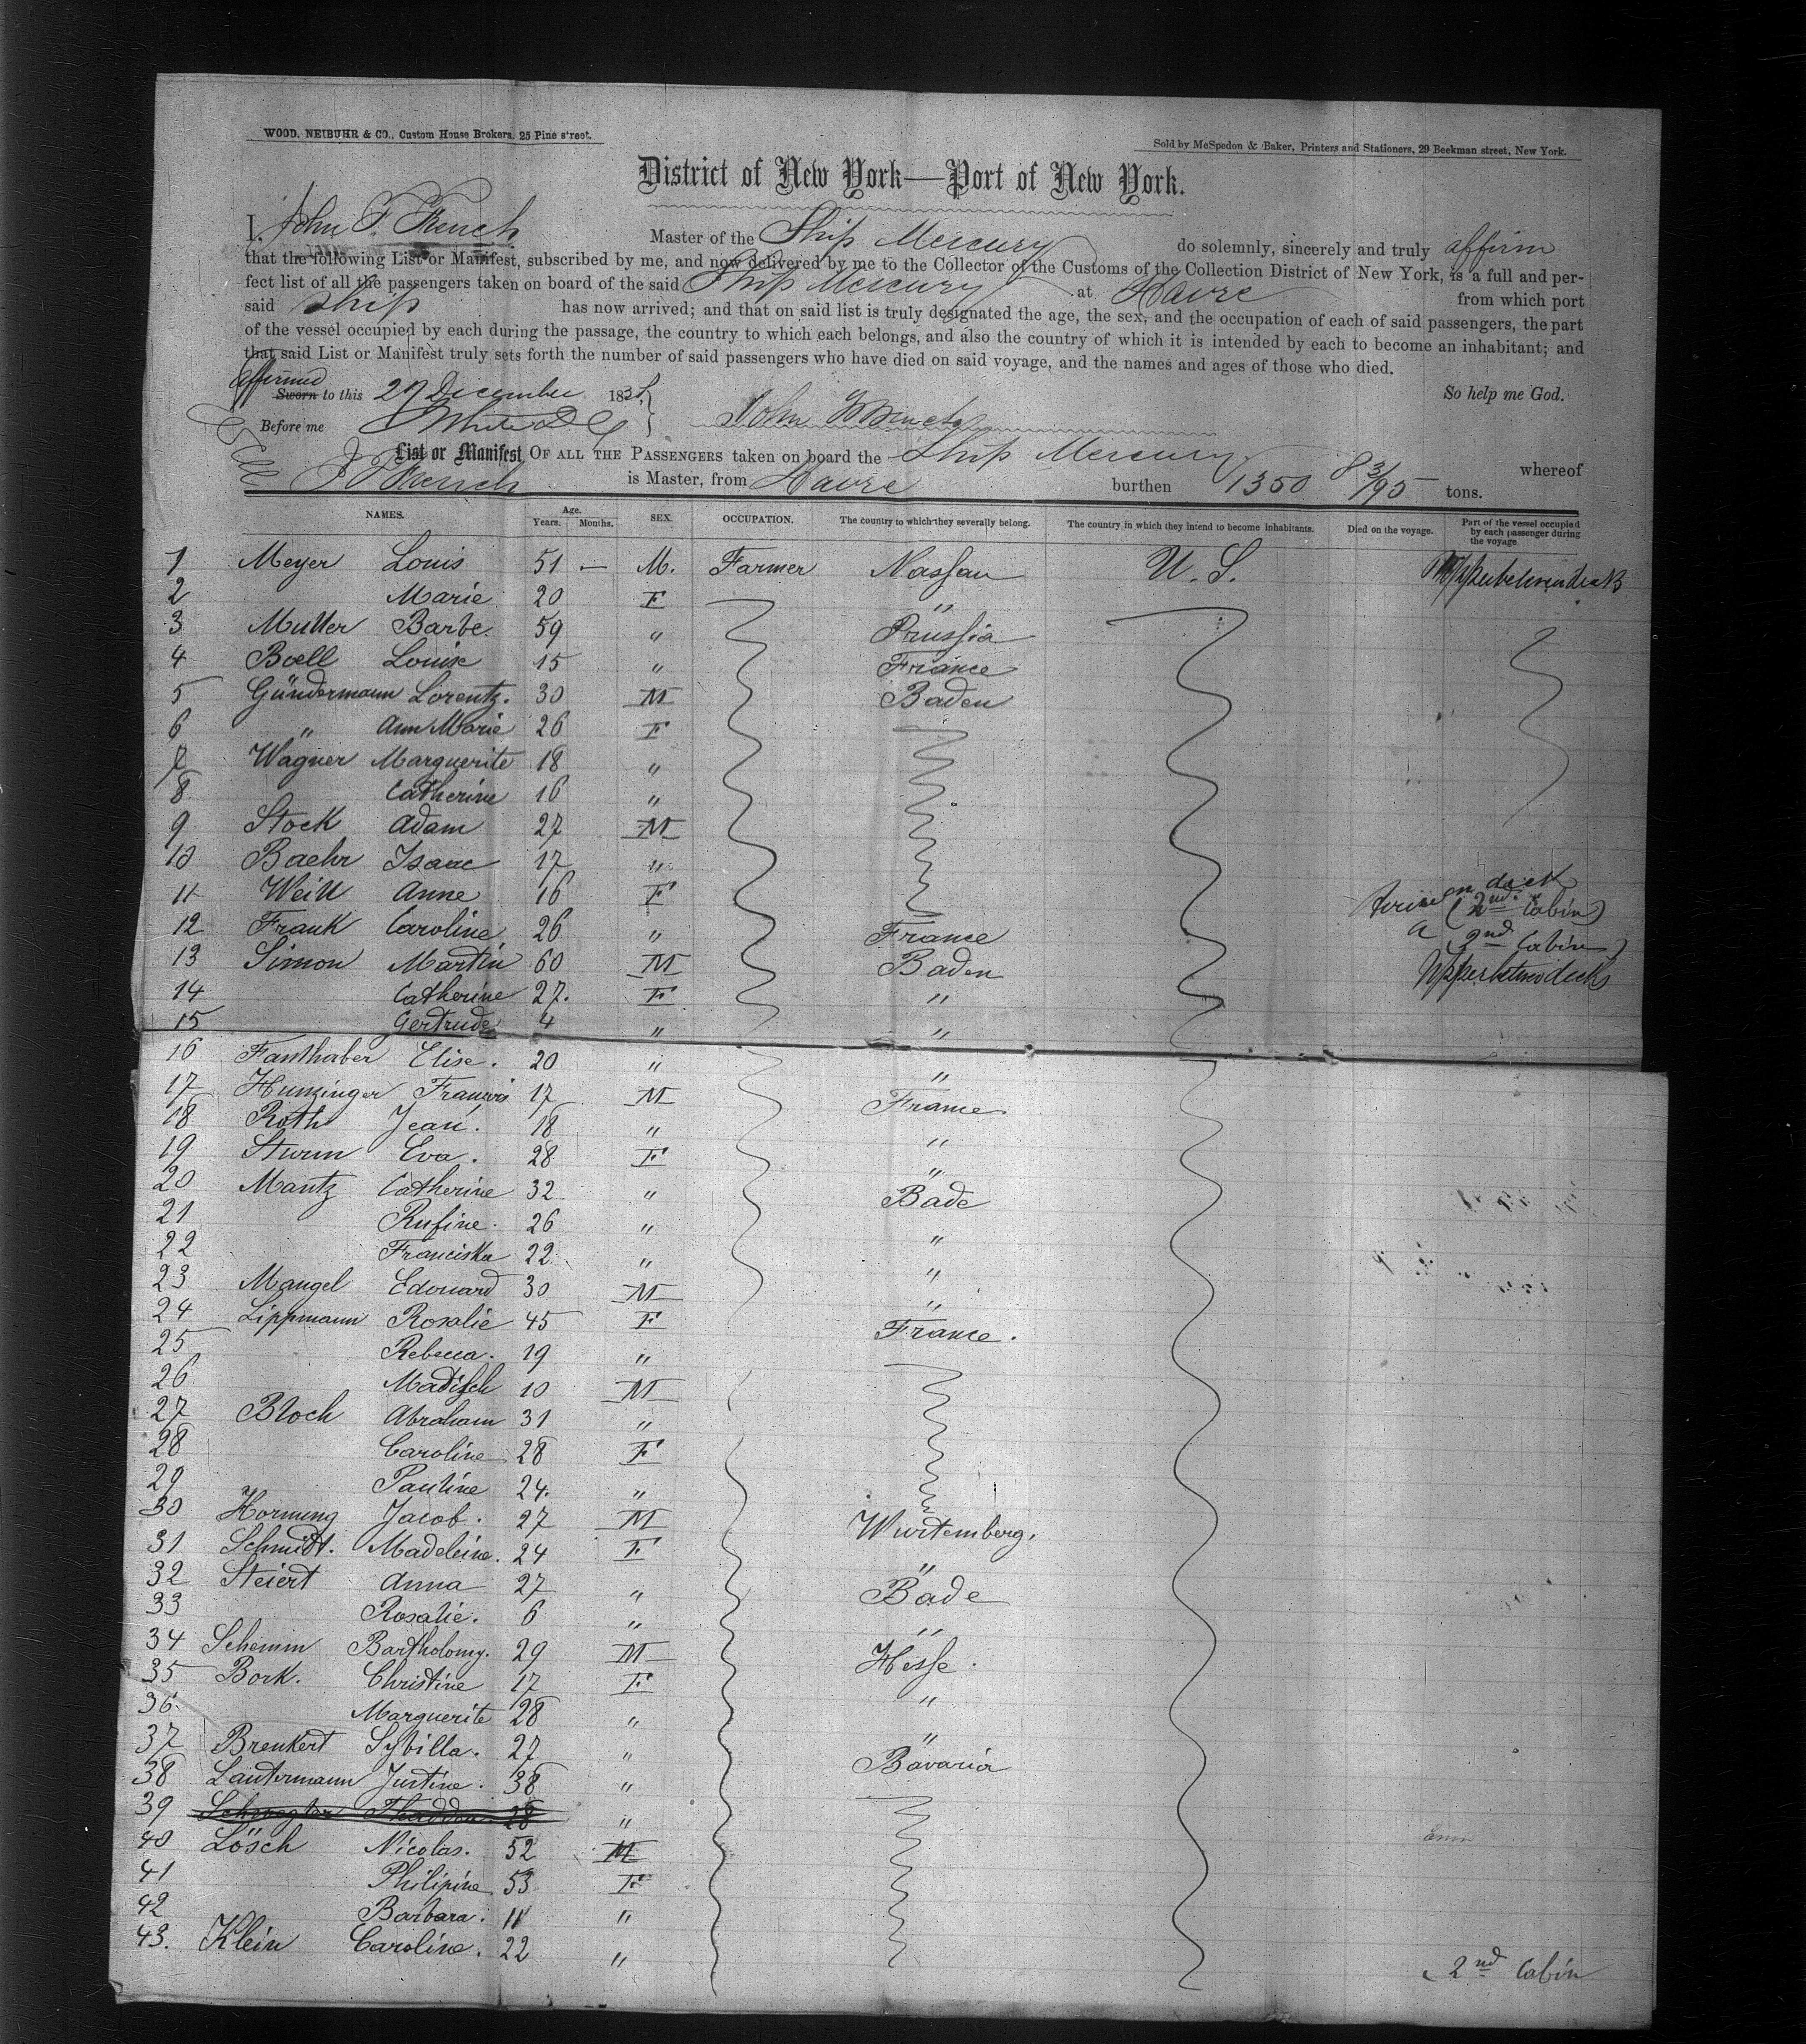 WOOD, NEIBUHR & CO., Custom House Brokers, 25 Pine street.
Sold by McSpedon & Baker, Printers and Stationers, 29 Beekman street, New York.
District of New York—Port of New York.
I, John P. French Master of the Ship Mercury do solemnly, sincerely and truly affirm
that the following List or Manifest, subscribed by me, and now delivered by me to the Collector of the Customs of the Collection District of New York, is a full and per-
fect list of all the passengers taken on board of the said Ship Mercury at Havre from which port
said Ship has now arrived; and that on said list is truly designated the age, the sex, and the occupation of each of said passengers, the part
of the vessel occupied by each during the passage, the country to which each belongs, and also the country of which it is intended by each to become an inhabitant; and
that said List or Manifest truly sets forth the number of said passengers who have died on said voyage, and the names and ages of those who died.
affirmed
Sworn to this 27 December 185 So help me God.
Before me John P French
List or Manifest OF ALL THE PASSENGERS taken on board the Ship Mercury whereof
J P French is Master, from Havre burthen 1350 83/95 tons.
NAMES. Age. Years. Months. SEX. OCCUPATION. The country to which they severally belong. The country in which they intend to become inhabitants. Died on the voyage. Part of the vessel occupied by each passenger during the voyage
1 Meyer Louis 51 — M. Farmer Nassau U. S. Upper between deck
2 Marie 20 F "
3 Muller Barbe 59 " Prussia
4 Boell Louise 15 " France
5 Gündermann Lorentz. 30 M Baden
6 " Ann Marie 26 F
7 Wagner Marguerite 18 "
8 Catherine 16 "
9 Stock Adam 27 M
10 Baehr Isaac 17 "
11 Weill Anne 16 F on deck (2nd Cabin)
12 Frank Caroline 26 " France (2nd Cabin)
13 Simon Martin 60 M Baden Upper between decks
14 Catherine 27. F "
15 Gertrude 4 " "
16 Fanthaber Elise. 20 " "
17 Hunzinger Francois 17 M France.
18 Roth Jean. 18 " "
19 Sturm Eva. 28 F "
20 Mantz Catherine 32 " Bade
21 Rufine. 26 " "
22 Franciska 22 " "
23 Mangel Edouard 30 M "
24 Lippmann Rosalie 45 F France.
25 Rebecca. 19 "
26 Madisch 10 M
27 Bloch Abraham 31 "
28 Caroline 28 F
29 Pauline 24. "
30 Hornung Jacob. 27 M Wurtemberg.
31 Schmidt. Madeleine. 24 F "
32 Steiert Anna 27 " Bade
33 Rosalie. 6 " "
34 Schemm Bartholomy. 29 M Hesse.
35 Bork. Christine 17 F "
36 Marguerite 28 "
37 Brenkert Sybilla. 27 " "
38 Lautermann Justine. 38 " Bavaria
39 28 "
40 Lösch Nicolas. 52 M
41 Philipine 53 F
42 Barbara. 11 "
43. Klein Caroline. 22 " 2nd Cabin